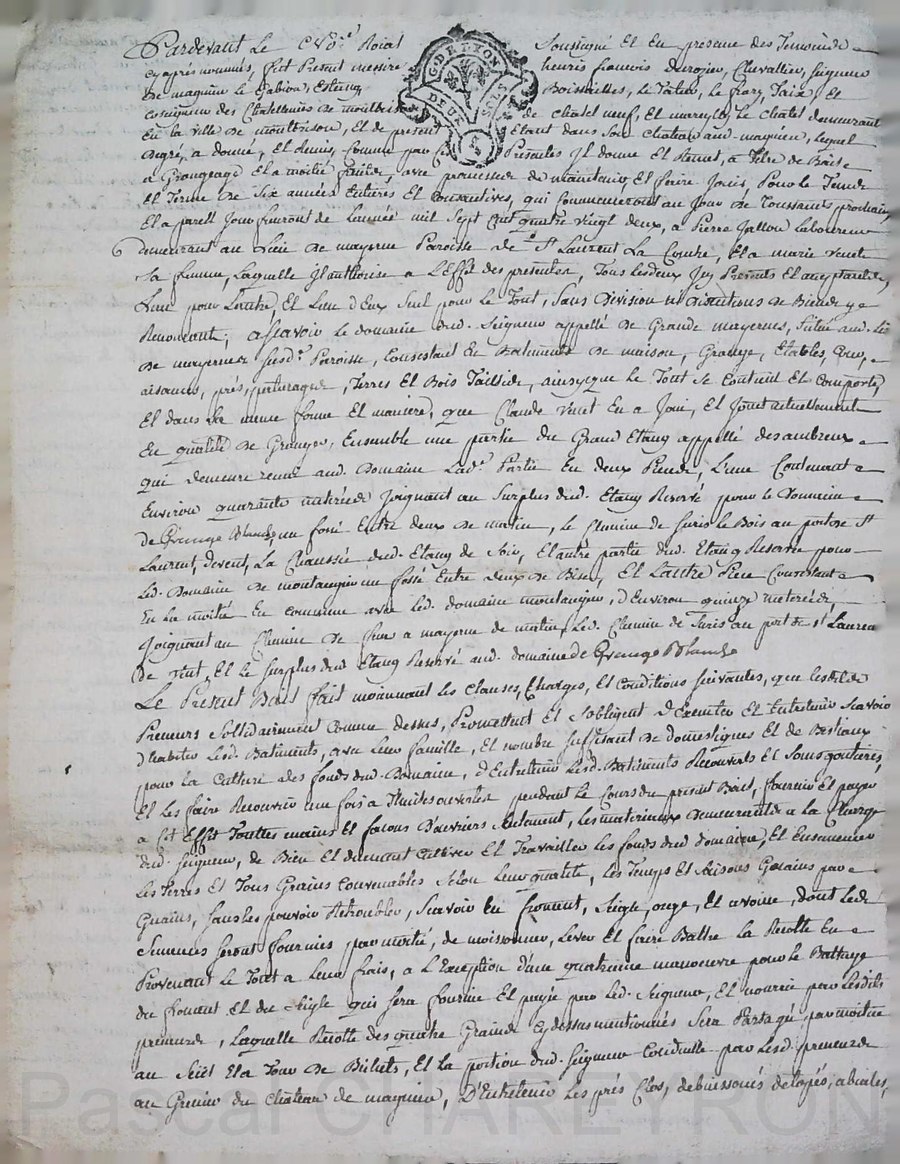 Pardevant Le Roial Soussigné Et En presence des Temoins
cy après nommés, fut Present messire henris françois Chevallier, Seigneur
De magnieu Le Gabion, Estaing Boisseilles, Le Palais, Le
coseigneur des Chatellenies de montbrison de chatel neuf, Et Le chatel demeurant
En la ville de montbrison, Et de present Etant dans son chateau aud. magnieu, Lequel
degré, a donné, Et Remis, Comme par Ces Presentes Il donne Et Remet, a Titre de Baile
a Grangeage Et a moitié fruits, avec promesse de maintenir Et faire Jouir, Pour Le Temps
Et Terme de Six années Entieres Et Consecutives, qui Commenceront au Jour de Toussaints prochain
Et a pareil Jour finiront de L'année mil Sept Cent quatre vingt deux, a Pierre Jallon Laboureur
demeurant au Lieu de mayerne Paroisse de St Laurent La Conche, Et a marie
Sa femme, Laquelle Il authorise a L'Effet des presentes, Tous Lesdeux Icy Presents Et acceptants
L'un pour L'autre, Et L'un d'Eux Seul pour Le Tout, Sans Division ni discutions de Biens y
Renoncant; ascavoir Le domaine dud. Seigneur appellé de Grande mayernes, Situé aud. Lieu
De mayernes Susd.e Paroisse, Consistant En Batiments de maison, Grange, Etables, Cour,
aisances, prés, paturages, Terres Et Bois Taillis, ainsy que Le Tout Se Contient Et Comporte
Et dans La meme forme Et maniere, que Claude En a Joui, Et Jouit actuellement
En qualité de Granger, Ensemble une partie du Grand Etang appellé desambreux
qui demeure reunie aud. Domaine Lad.e Partie En deux Pieces, L'une Contenant
Environ quarante meterées Joignant au Surplus dud. Etang Reservé pour le Domaine
de Grange Blanche un fossé Entre deux de matin, Le Chemin de Suris Le Bois au port de St
Laurent, devent, La Chaussée dud. Etang de Soir, Et autre partie dud. Etang Reservée pour
Led. Domaine de un fossé Entre deux de Bise, Et L'autre Piece Consistant
En La moitié En commune avec Led. domaine, d'Environ quinze meterées,
Joignant au Chemin de a mayerne de matin, Led. Chemin de Suris au port de St Laurent
De Vent, Et Le Surplus dud. Etang Reservé aud. domaine de Grange Blanche
Le Present Bail fait moiennant Les Clauses, Charges, Et Conditions Suivantes, que Lesdits
Preneurs Sollidairement Comme dessus, Promettent Et S'obligent d'Executer Et Entretenir Scavoir
d'habiter Lesd. Batiments, avec Leur famille, Et nombre suffisant de domestiques Et de Bestiaux
pour La Culture des fonds dud. Domaine, d'Entretenir Lesd. Batiments Recouverts Et Sans goutieres,
Et Les faire Recouvrir une fois a Thuiles ouvertes pendant Le Cours du present Bail, fournir Et payer
a Cet Effet Touttes mains Et facons d'ouvriers Seulement, Les materiaux demeurants a La Charge
dud. Seigneur, de Bien Et duement Cultiver Et Travailler Les fonds dud. domaine, Et Ensemencer
Les Terres Et Tous Grains Convenables Selon Leur qualité, Les Temps Et Saisons Grains par
Grains, Sans Les pouvoir Retroubler, Scavoir En froment, Seigle, orge, Et avoine, dont Lesd.
Semences Seront fournies par moitié, de moissonner, Lever Et faire Battre La Recolte En
Provenant Le Tout a Leur frais, a L'Exception d'une quatrieme manoeuvre pour Le Battage
du froment Et du Seigle qui Sera fournie Et payée par Led. Seigneur, Et nourrie par Lesdits
preneurs, Laquelle Recolte des quatre Grains Cy dessus mentionnés Sera Partagé, par moitié
au Sciet Et a La Tour de Billets, Et La portion dud. Seigneur Conduitte par Lesd. preneurs
au Grenier du chateau de magnieu, D'Entretenir Les prés Clos, debuissonés, detopés,
Pascal CHAREYRON
G. DE LYON
DEUX SOLS